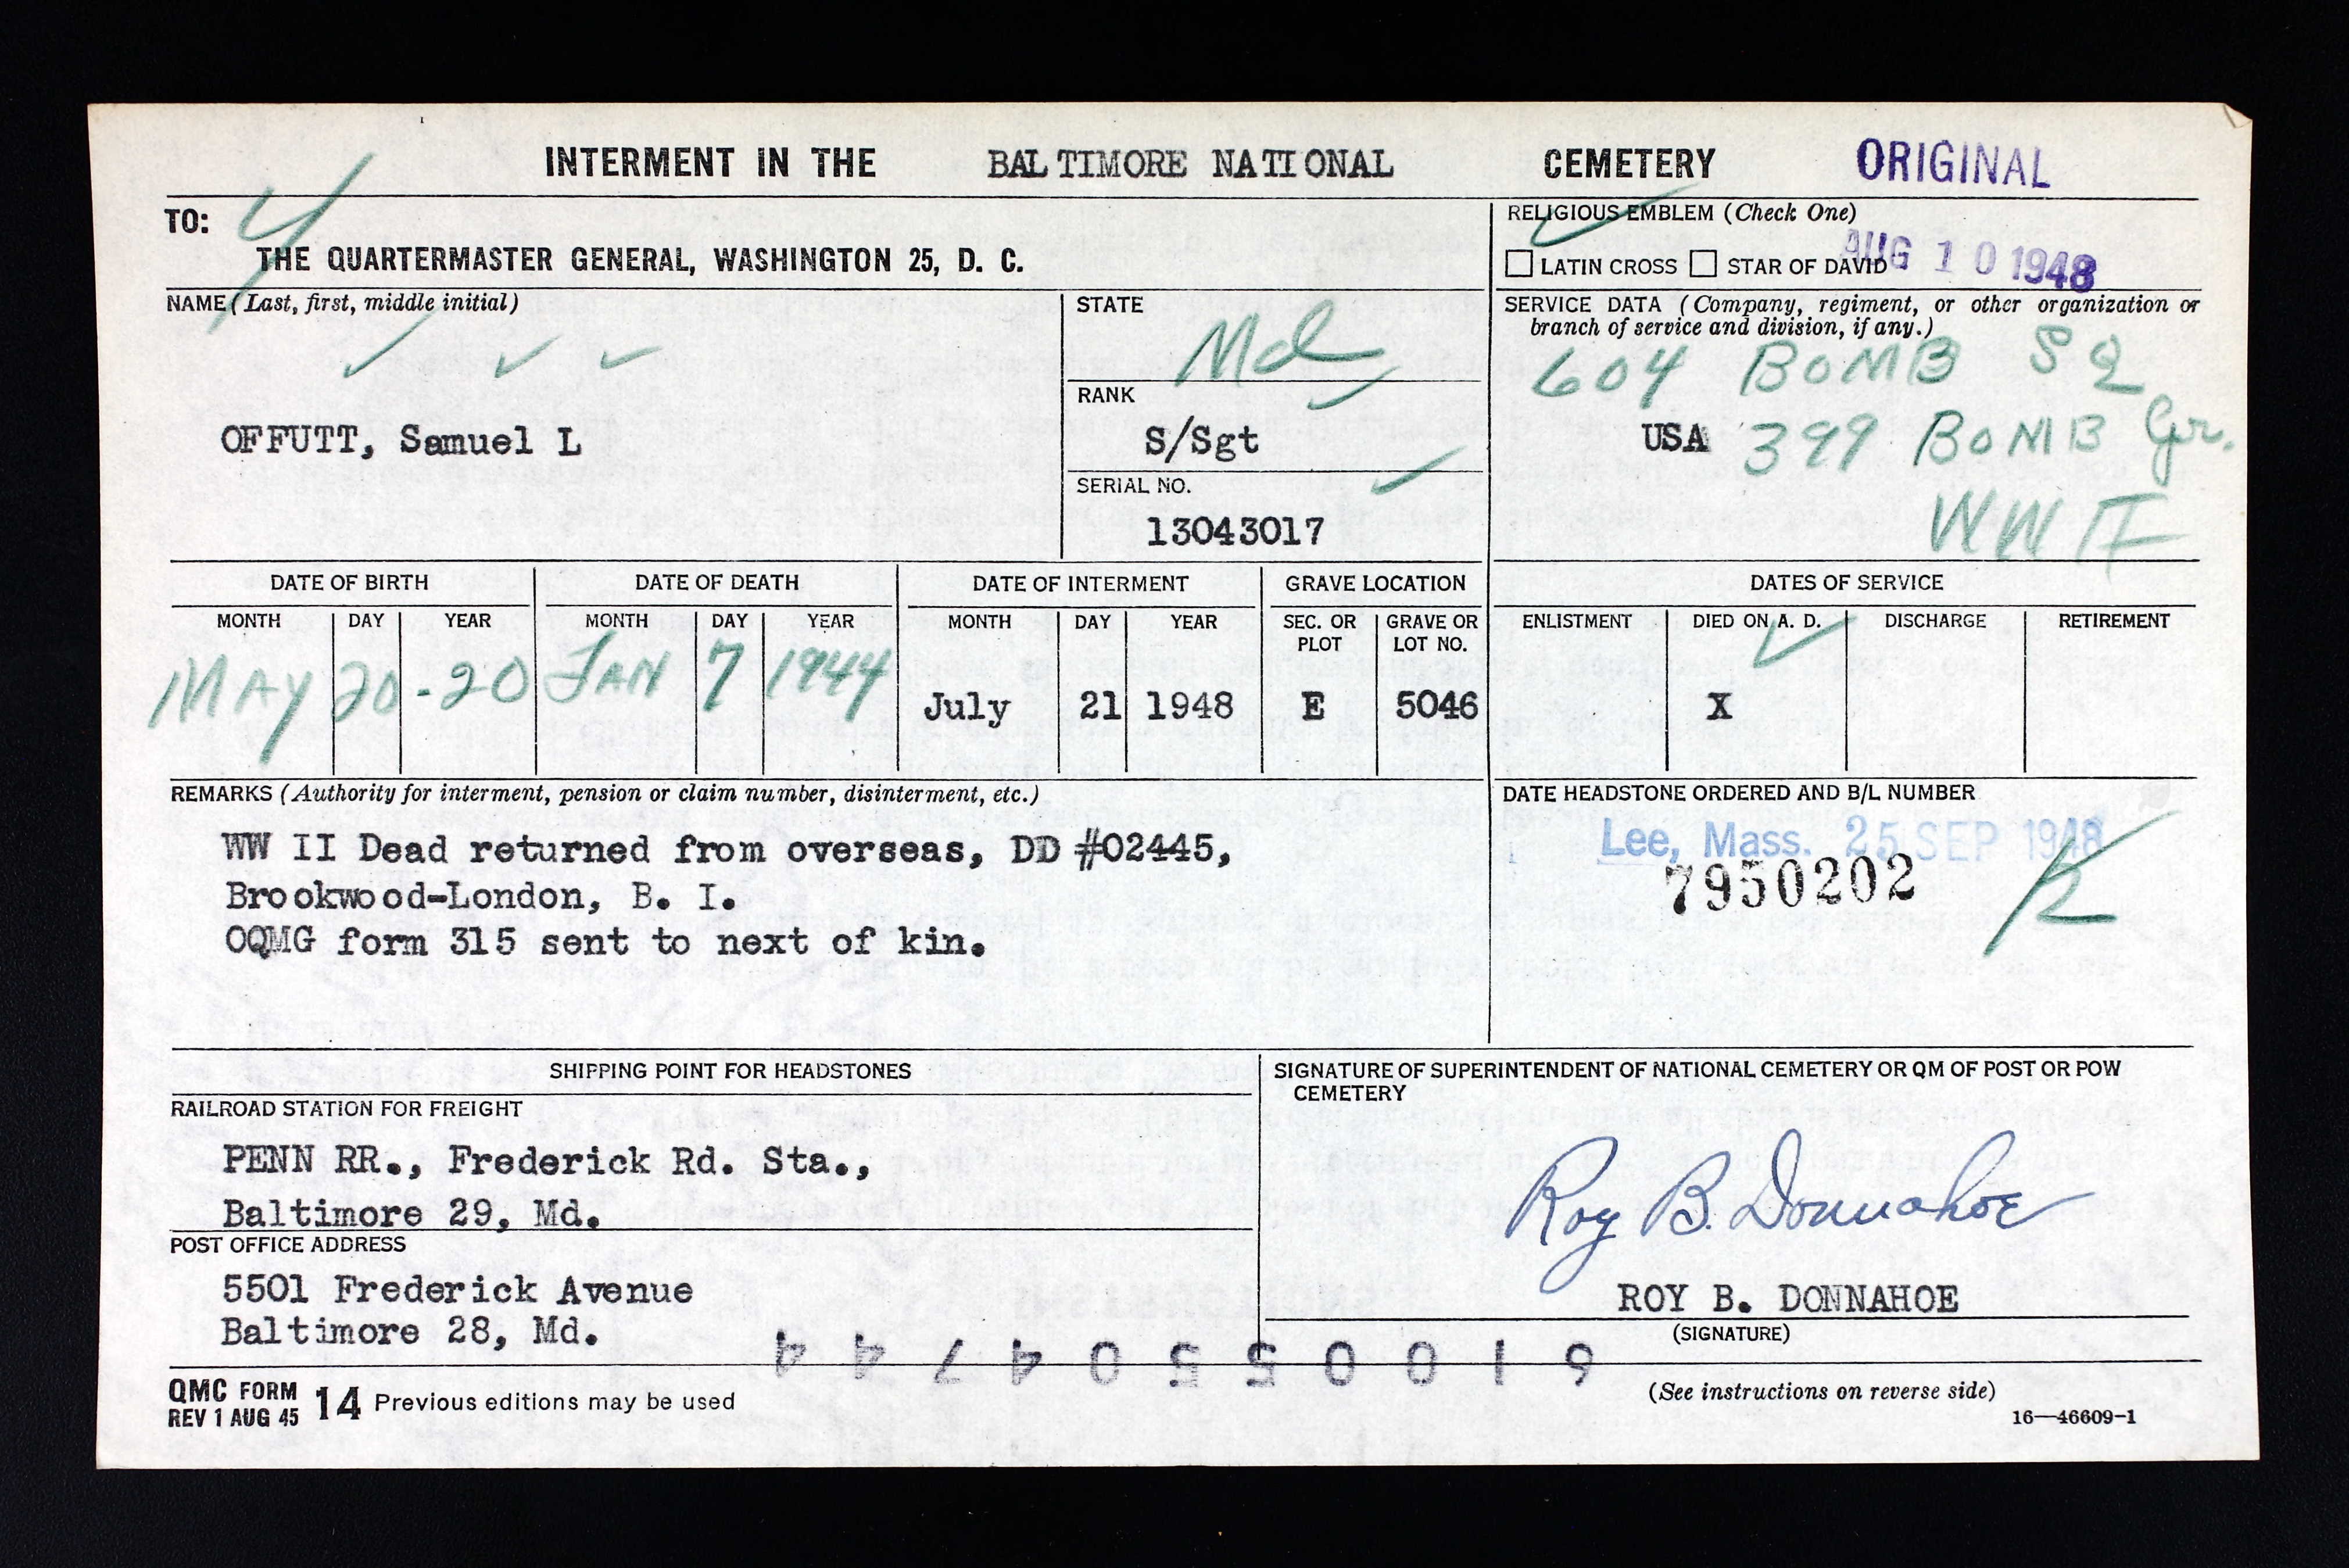 INTERMENT IN THE BALTIMORE NATIONAL CEMETERY ORIGINAL
TO:
THE QUARTERMASTER GENERAL, WASHINGTON 25, D. C.
RELIGIOUS EMBLEM (Check One)
LATIN CROSS STAR OF DAVID
AUG 10 1948
NAME (Last, first, middle initial)
OFFUTT, Samuel L
STATE
Md
RANK
S/Sgt
SERIAL NO.
13043017
SERVICE DATA (Company, regiment, or other organization or
branch of service and division, if any.)
604 BOMB SQ
USA 399 BOMB Gr.
WW II
DATE OF BIRTH
MONTH DAY YEAR
MAY 20 - 20
DATE OF DEATH
MONTH DAY YEAR
JAN 7 1944
DATE OF INTERMENT
MONTH DAY YEAR
July 21 1948
GRAVE LOCATION
SEC. OR PLOT
GRAVE OR LOT NO.
E 5046
DATES OF SERVICE
ENLISTMENT DIED ON A. D. DISCHARGE RETIREMENT
X
REMARKS (Authority for interment, pension or claim number, disinterment, etc.)
WW II Dead returned from overseas, DD #02445,
Brookwood-London, B. I.
OQMG form 315 sent to next of kin.
DATE HEADSTONE ORDERED AND B/L NUMBER
Lee, Mass. 25 SEP 1948
7950202
K
SHIPPING POINT FOR HEADSTONES
RAILROAD STATION FOR FREIGHT
PENN RR., Frederick Rd. Sta.,
Baltimore 29, Md.
POST OFFICE ADDRESS
5501 Frederick Avenue
Baltimore 28, Md.
SIGNATURE OF SUPERINTENDENT OF NATIONAL CEMETERY OR QM OF POST OR POW
CEMETERY
Roy B. Donnahoe
ROY B. DONNAHOE
(SIGNATURE)
QMC FORM 14 Previous editions may be used
REV 1 AUG 45
(See instructions on reverse side)
16—46609-1